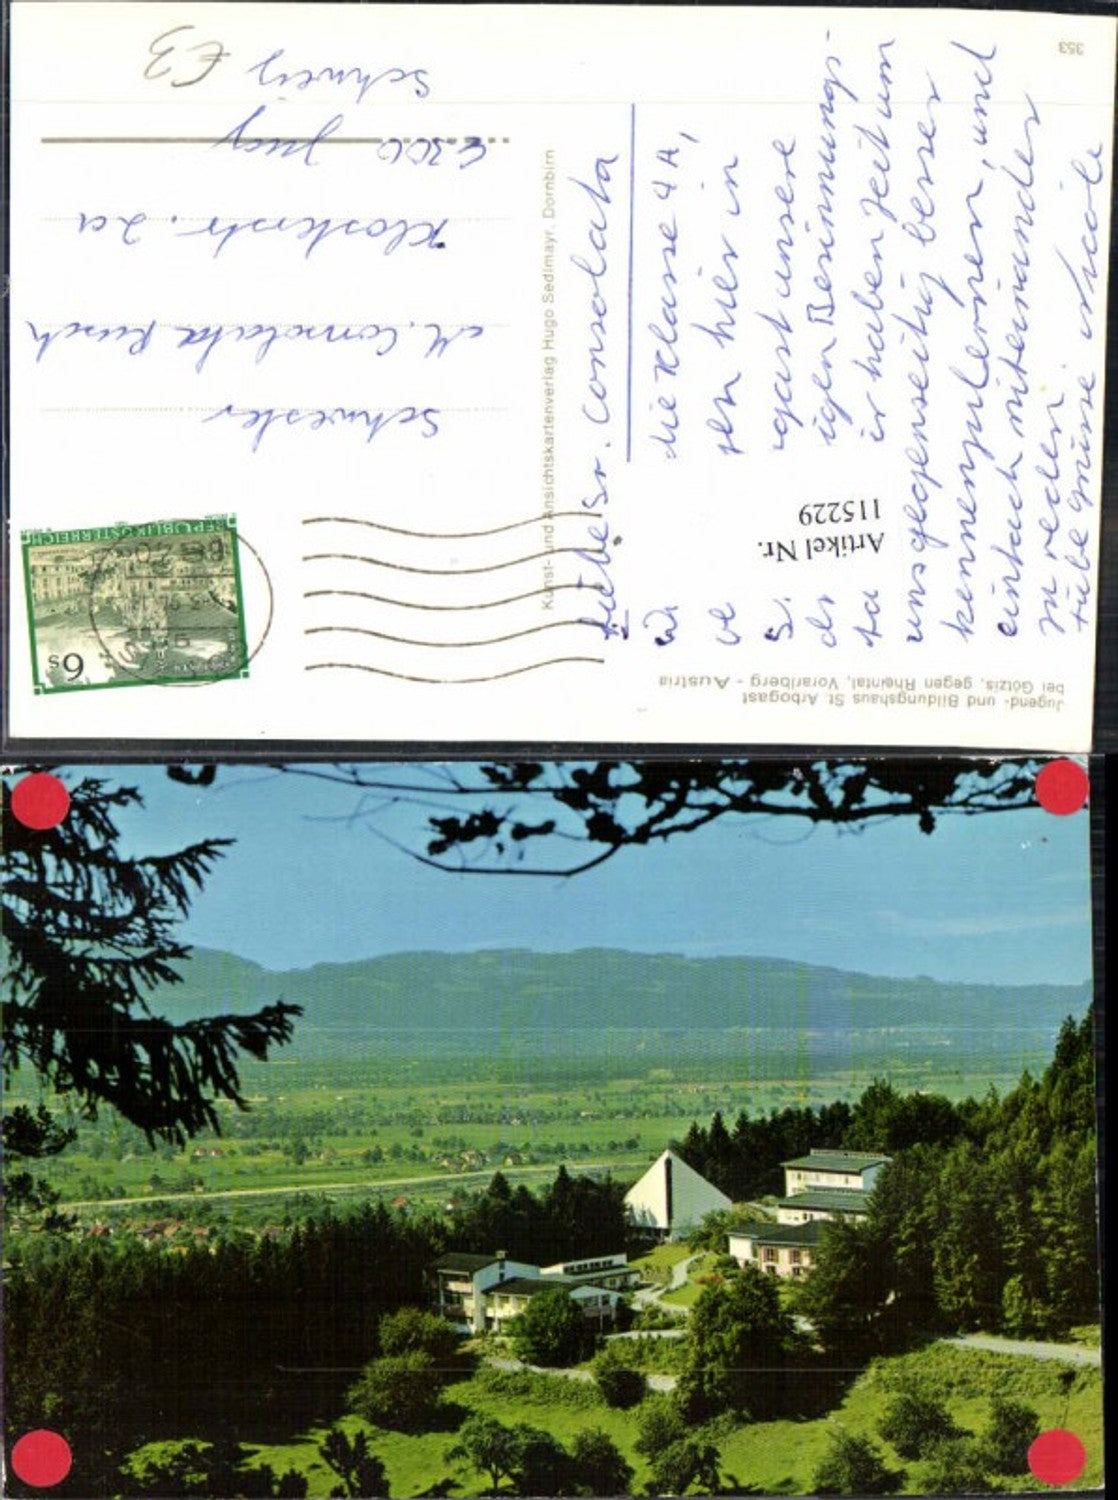 Jugend- und Bildungshaus St. Arbogast
bei Götzis, gegen Rheintal, Vorarlberg - Austria
Liebe Sr. Consolata
die Klasse 4A,
hier in
gast unsere
igen Besinnungs-
ir haben Zeit um
uns gegenseitig besser
kennenzulernen, und
einfach miteinander
zu reden.
Liebe Grüsse Nicole
Artikel Nr.
115229
Kunst- und Ansichtskartenverlag Hugo Sedlmayr, Dornbirn
6s
REPUBLIK ÖSTERREICH
Schwester
M. Consolata Rusch
Klosterstr. 2a
6300 Zug
Schweiz
€3
353